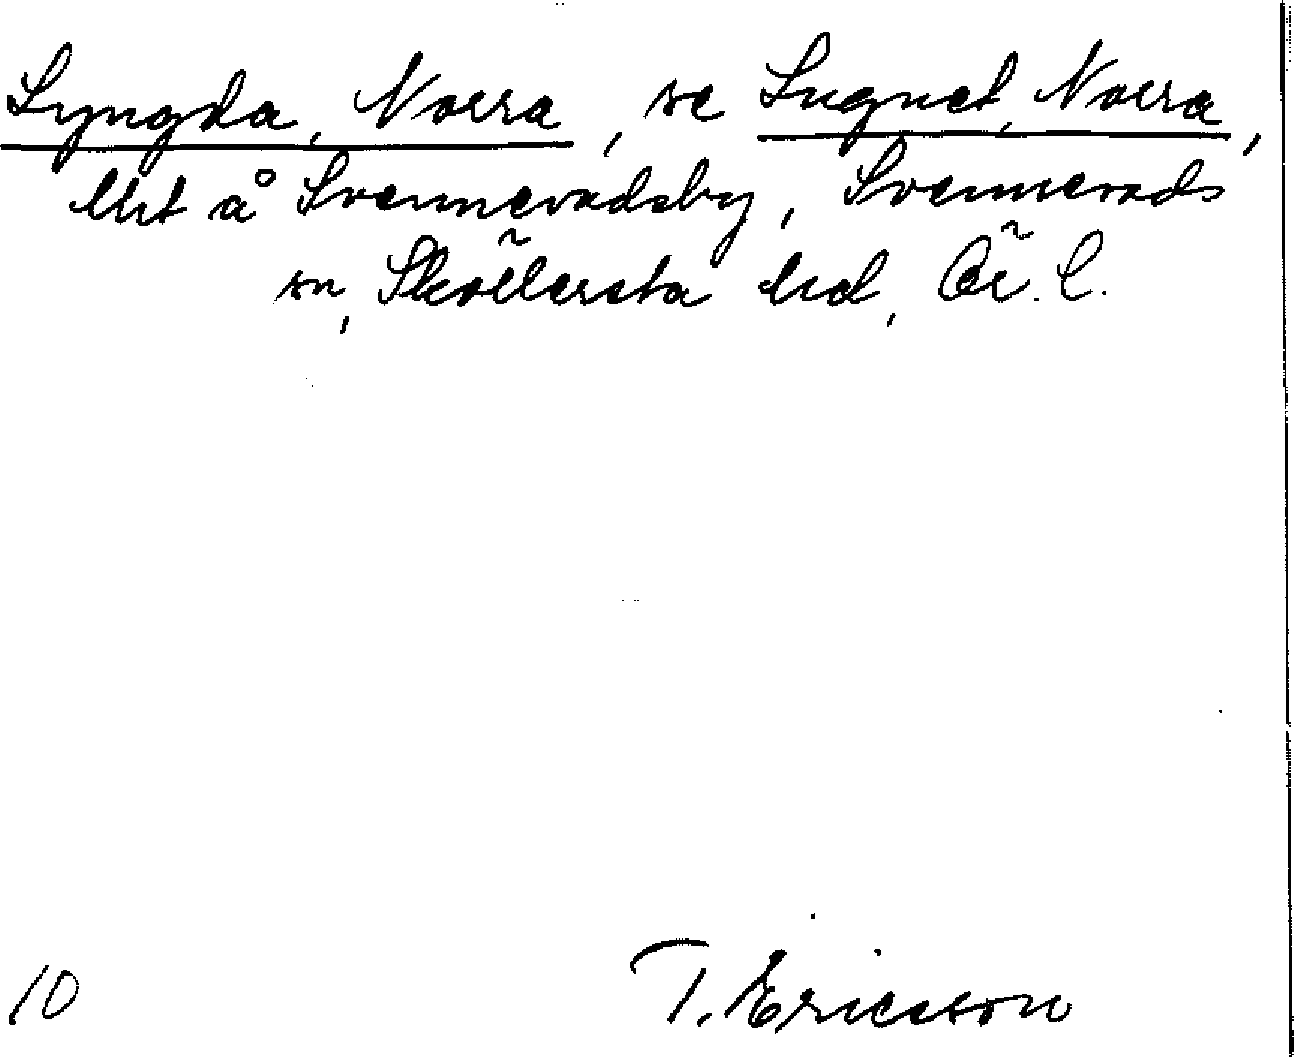 Lyngda, Norra, se Lugnet, Norra,
lht å Svennevadsby, Svennevads
sn, Sköllersta hd, Ör. l.
10 T. Ericsson